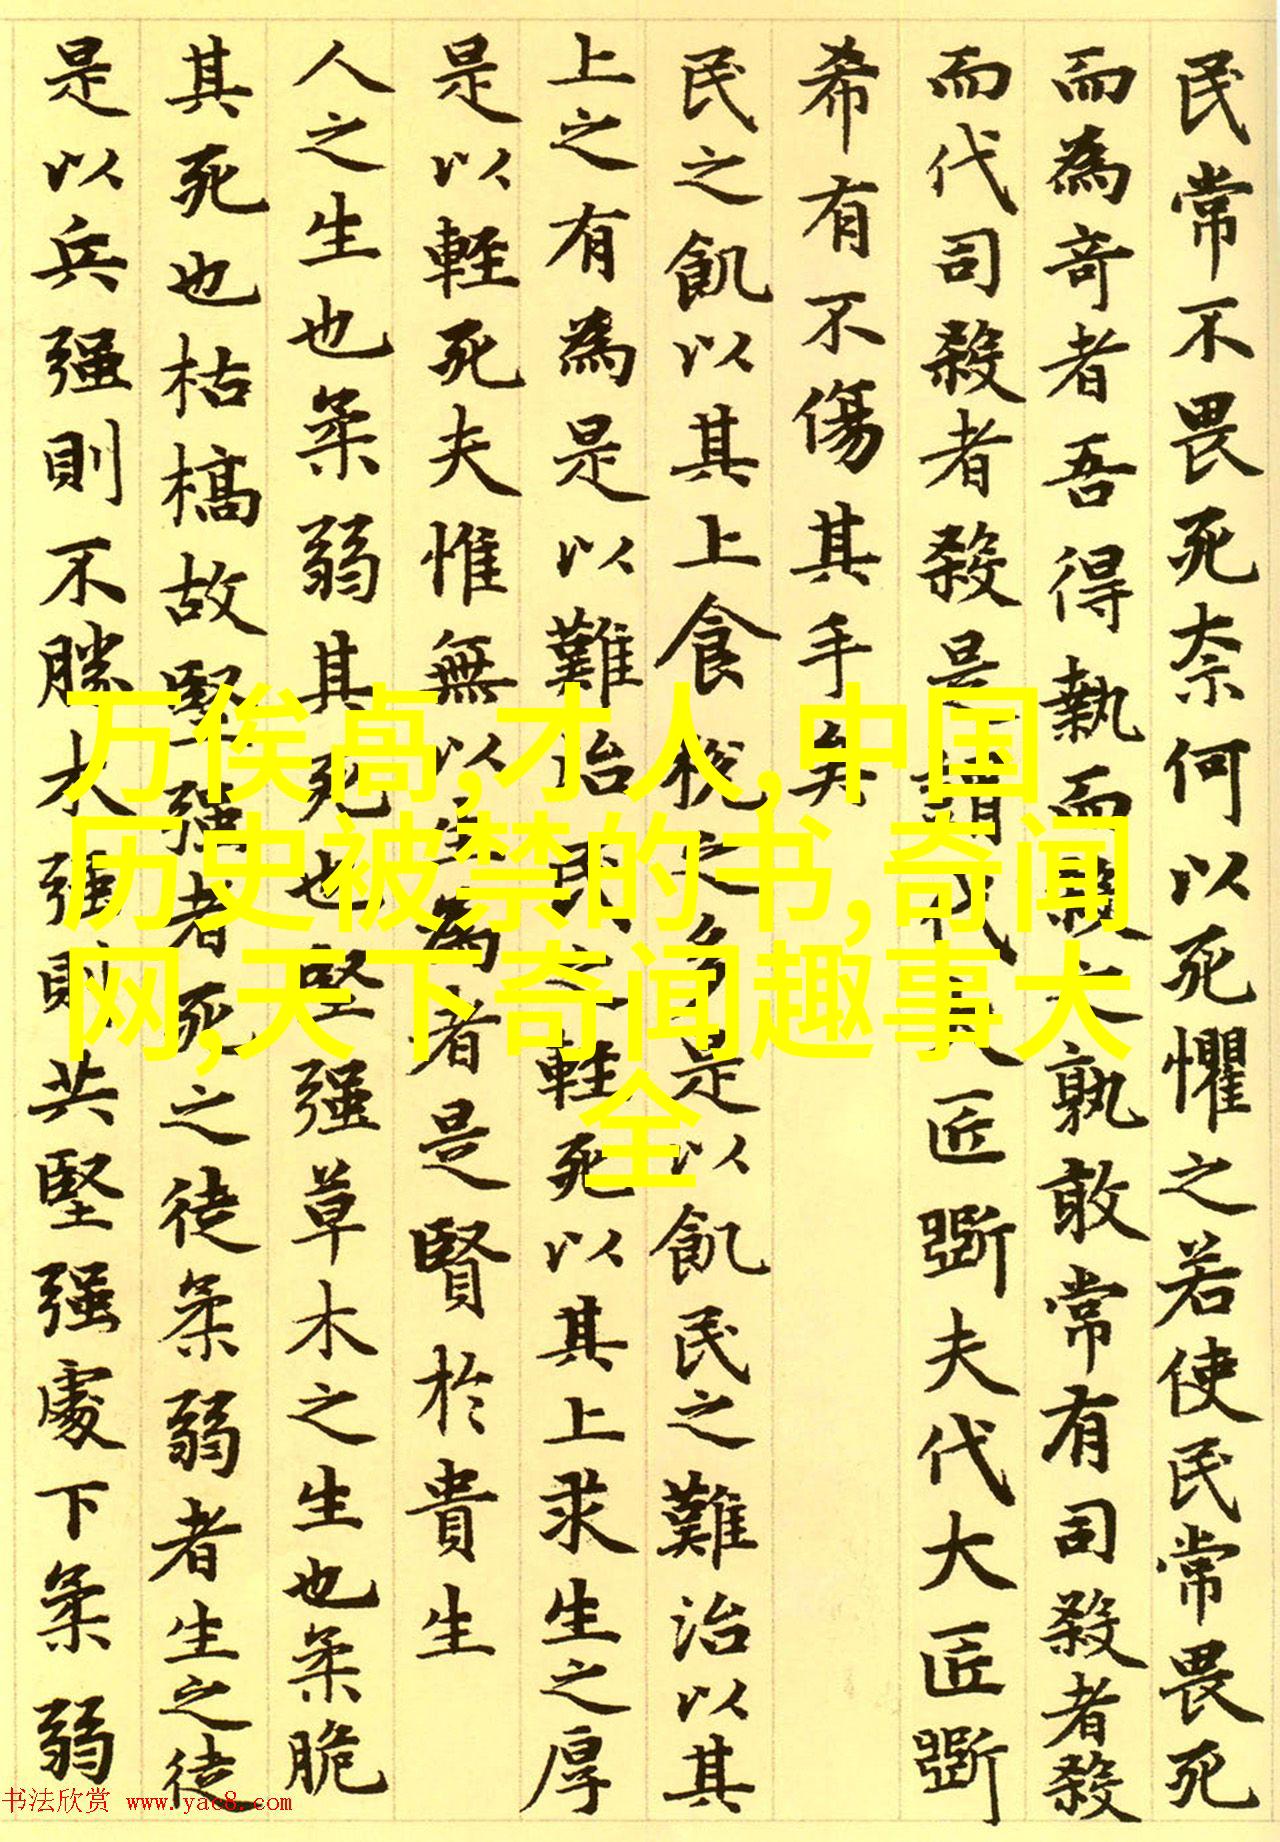 民常不畏死奈何以死懼之若使民常畏死
而為奇者吾得執而殺之孰敢常有司殺者殺
而代司殺者殺是謂代大匠斲夫代大匠斲
希有不傷其手矣
民之飢以其上食稅之多是以飢民之難治以其
上之有為是以難治民之軽死以其上求生之厚
是以軽死夫惟無以生為者是賢於貴生
人之生也柔弱其死也堅强草木之生也柔脆
其死也枯槁故堅强者死之徒柔弱者生之徒
是以兵强則不勝木强則共堅强處下柔弱
万俟卨,才人,中国
历史被禁的书,奇闻
网,天下奇闻趣事大
全
书法欣赏 www.yac8.com